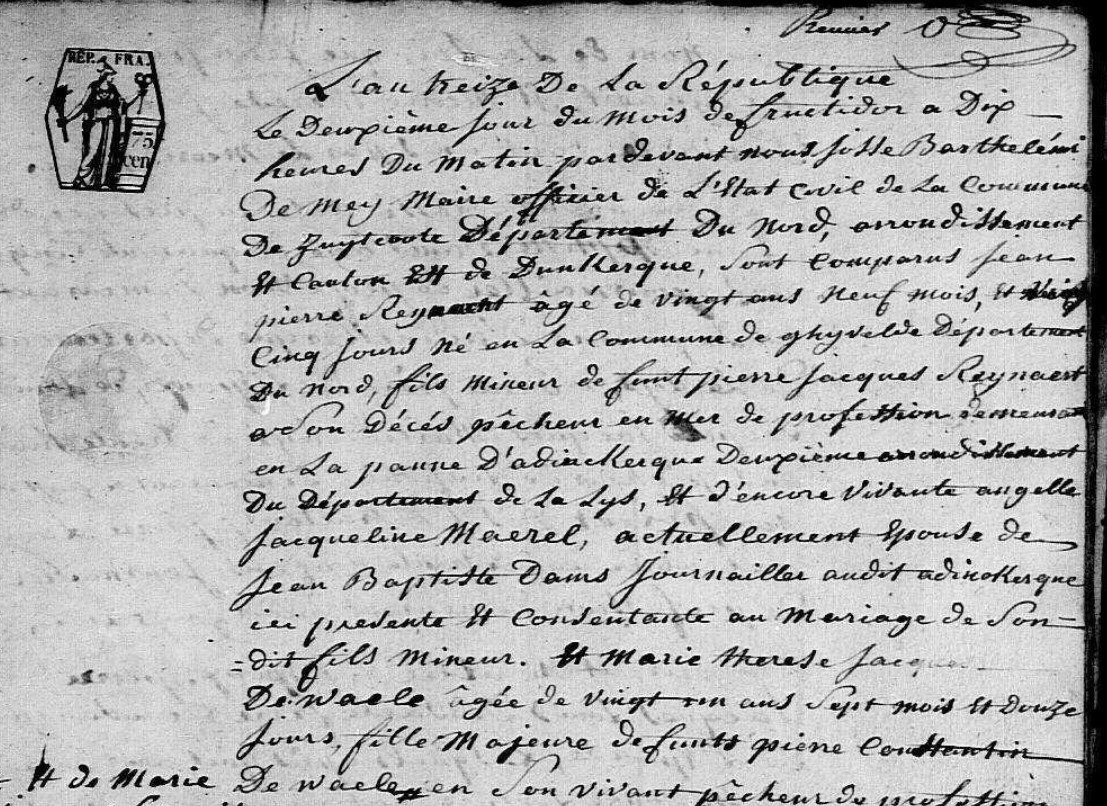 Premier
RÉP. FRA.
75
cen.
L'an treize De La République
Le Deuxième jour du Mois de fructidor a Dix
heures Du Matin pardevant nous josse Barthelémi
De Mey Maire officier de L'Etat Civil de La Commune
De Zuytcoote Département Du Nord, arrondissement
Et Canton Et de Dunkerque, sont comparus jean
pierre Reynaert âgé de vingt ans neuf mois, et vingt
Cinq jours né en La Commune de ghyvelde Département
Du Nord, fils Mineur de funt pierre jacques Reynaert
a son décés pêcheur en Mer de profession demeurant
en La panne D'adinckerque Deuxième arrondissement
Du Département de La Lys, Et d'encore vivante angelle
jacqueline Maerel, actuellement Epouse de
jean Baptiste Dams journailler audit adinckerque
ici presente Et Consentante au Mariage de son
=dit fils Mineur. Et Marie therese jacques
De waele âgée de vingt un ans sept mois Et Douze
jours, fille Majeure de funts pierre Constantin
Et de Marie
De waele en son vivant pêcheur de professi